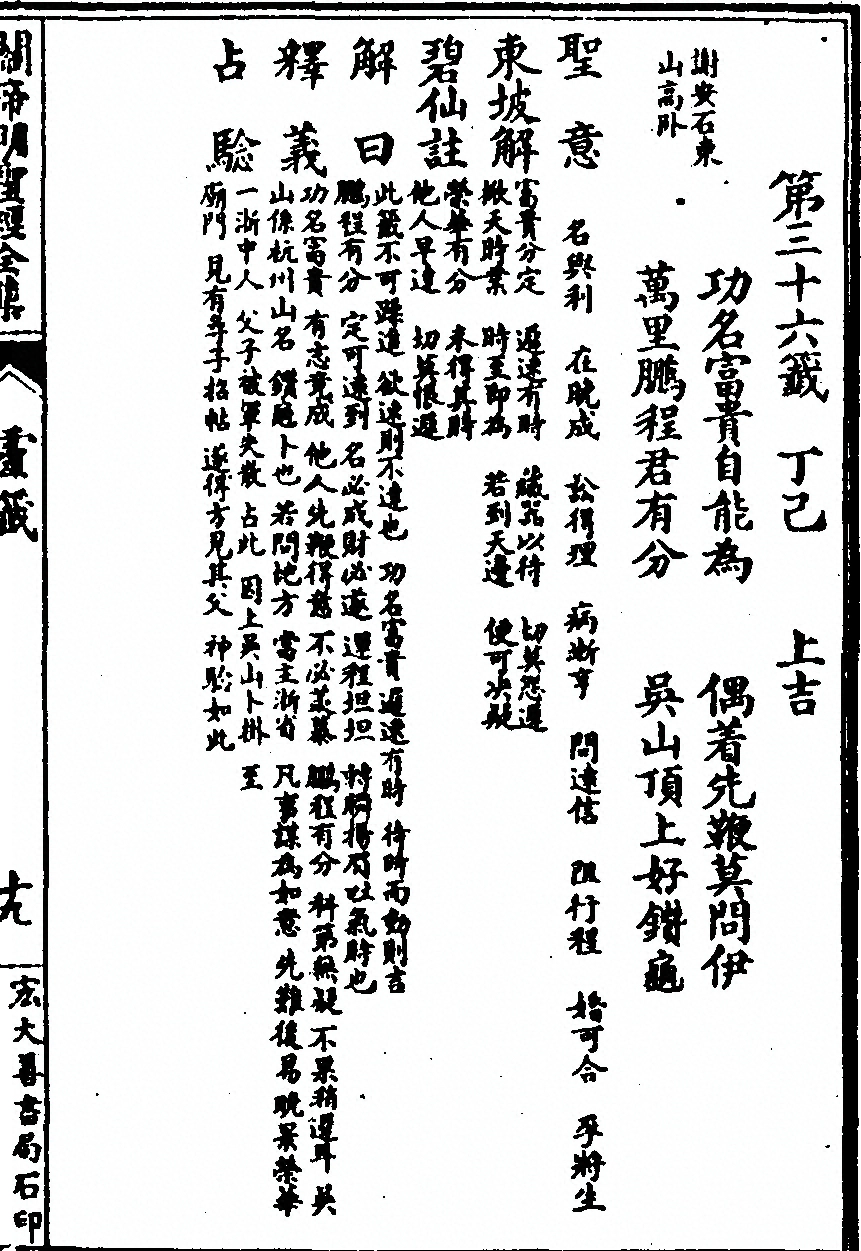 第三十六籤　丁己　上吉
謝安石東
山高臥
功名富貴自能為　偶着先鞭莫問伊
萬里鵬程君有分　吳山頂上好鑽龜
聖意　名與利　在晚成　訟得理　病漸亨　問遠信　阻行程　婚可合　孕將生
東坡解　富貴分定　遲速有時　藏器以待　切莫怨遲
揪天時業　時至即為　若到天邊　便可決疑
碧仙註　榮華有分　未得其時
他人早達　切莫恨遲
解曰　此籤不可躁進　欲速則不達也　功名富貴遲速有時　待時而動則吉
鵬程有分　定可遠到　名必成財必遂　運程坦坦　轉瞬揚眉吐氣時也
釋義　功名富貴　有志竟成　他人先鞭得意　不必羨慕　鵬程有分　科第無疑　不果稍遲耳　吳
山係杭州山名　鑽龜卜也　若問地方　當主浙省　凡事謀為如意　先難後易晚景榮華
占驗　一浙中人　父子被軍失散　占此　因上吳山卜掛　至
廟門　見有尋子招帖　遂得方見其父　神驗如此
關帝明聖經全集
靈籤
十九
宏大善書局石印